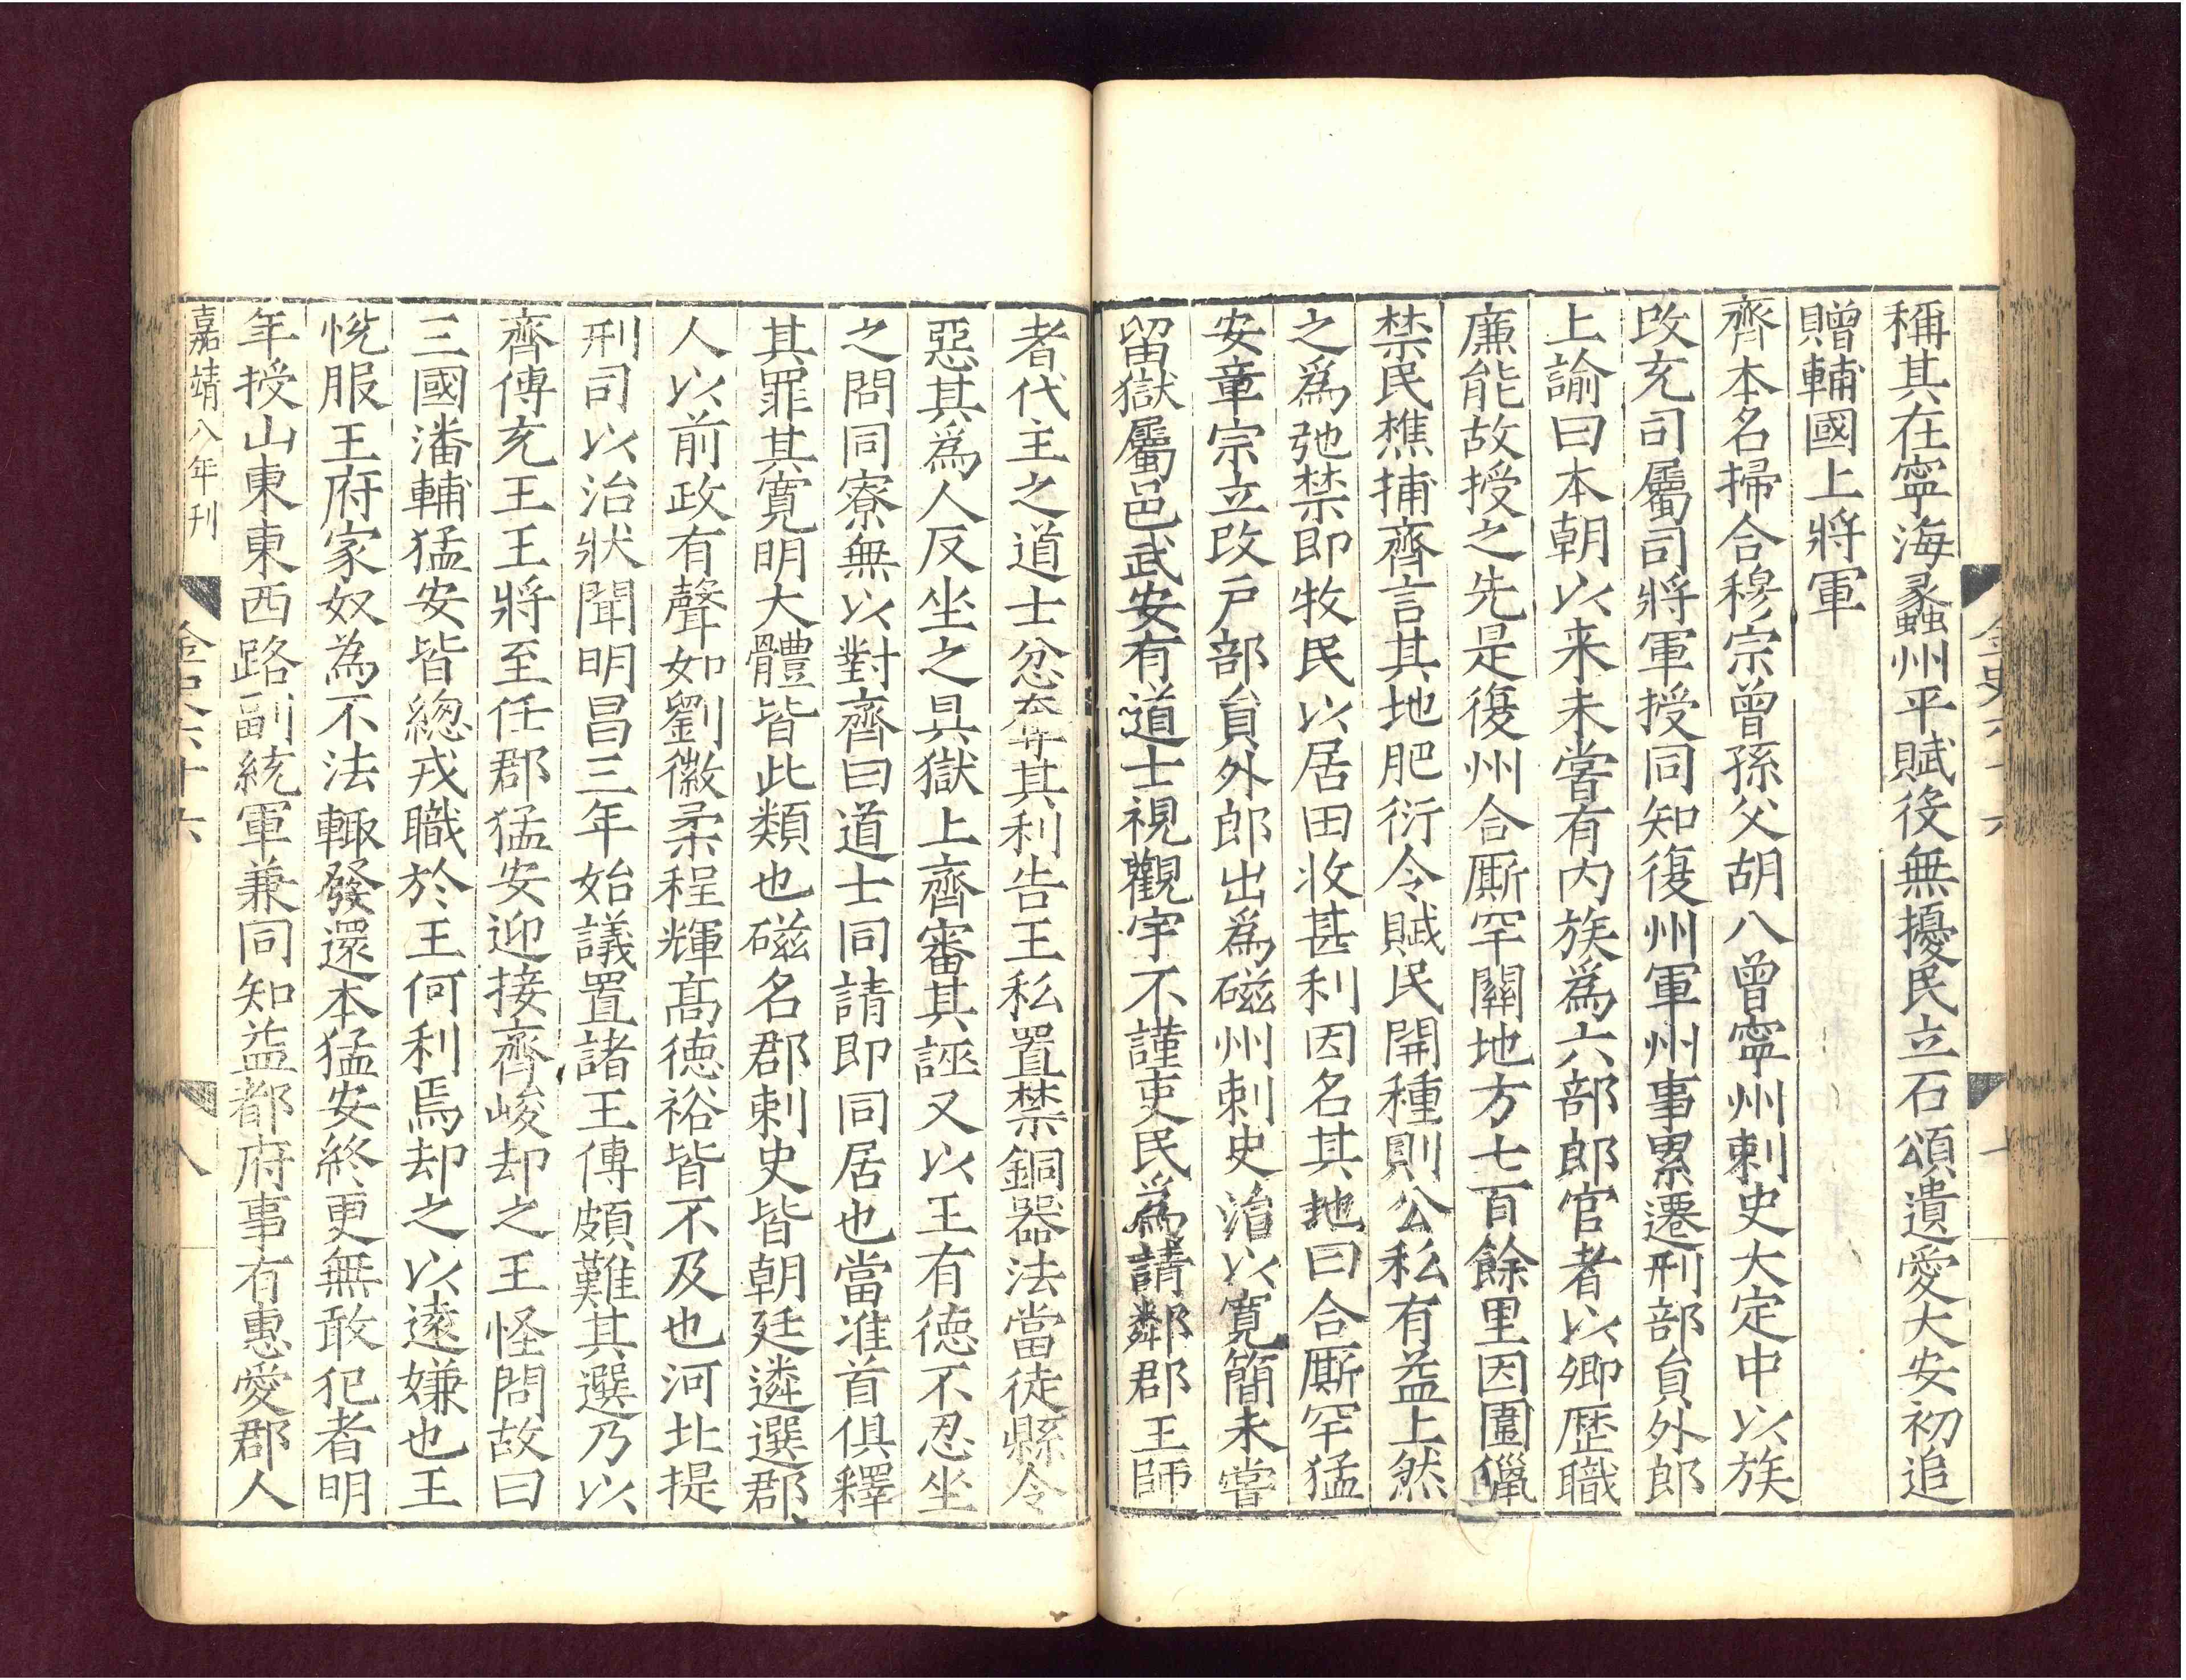 稱其在寧海蠡州平賦役無擾民立石頌遺愛大安初追
贈輔國上將軍
齊本名掃合穆宗曾孫父胡八曾寧州刺史大定中以族
改充司屬司將軍授同知復州軍州事累遷刑部員外郎
上諭曰本朝以来未嘗有内族爲六部郎官者以卿歷職
廉能故授之先是復州合厮罕關地方七百餘里因圍獵
禁民樵捕齊言其地肥衍令賦民開種則公私有益上然
之爲弛禁即牧民以居田收甚利因名其地曰合厮罕猛
安章宗立改戶部員外郎出爲磁州刺史治以寬簡未嘗
留獄屬邑武安有道士視觀宇不謹吏民爲請鄰郡王師
者代主之道士忿奪其利告王私置禁銅器法當徒縣令
惡其爲人反坐之具獄上齊審其誣又以王有德不忍坐
之問同寮無以對齊曰道士同請即同居也當准首俱釋
其罪其寬明大體皆此類也磁名郡刺史皆朝廷遴選郡
人以前政有聲如劉徽柔程輝高德裕皆不及也河北提
刑司以治狀聞明昌三年始議置諸王傅頗難其選乃以
齊傅兗王王將至任郡猛安迎接齊峻却之王怪問故曰
三國潘輔猛安皆總戎職於王何利焉却之以遠嫌也王
悅服王府家奴為不法輙發還本猛安終更無敢犯者明
年授山東東西路副統軍兼同知益都府事有惠愛郡人
嘉靖八年刊
金史六十六
八